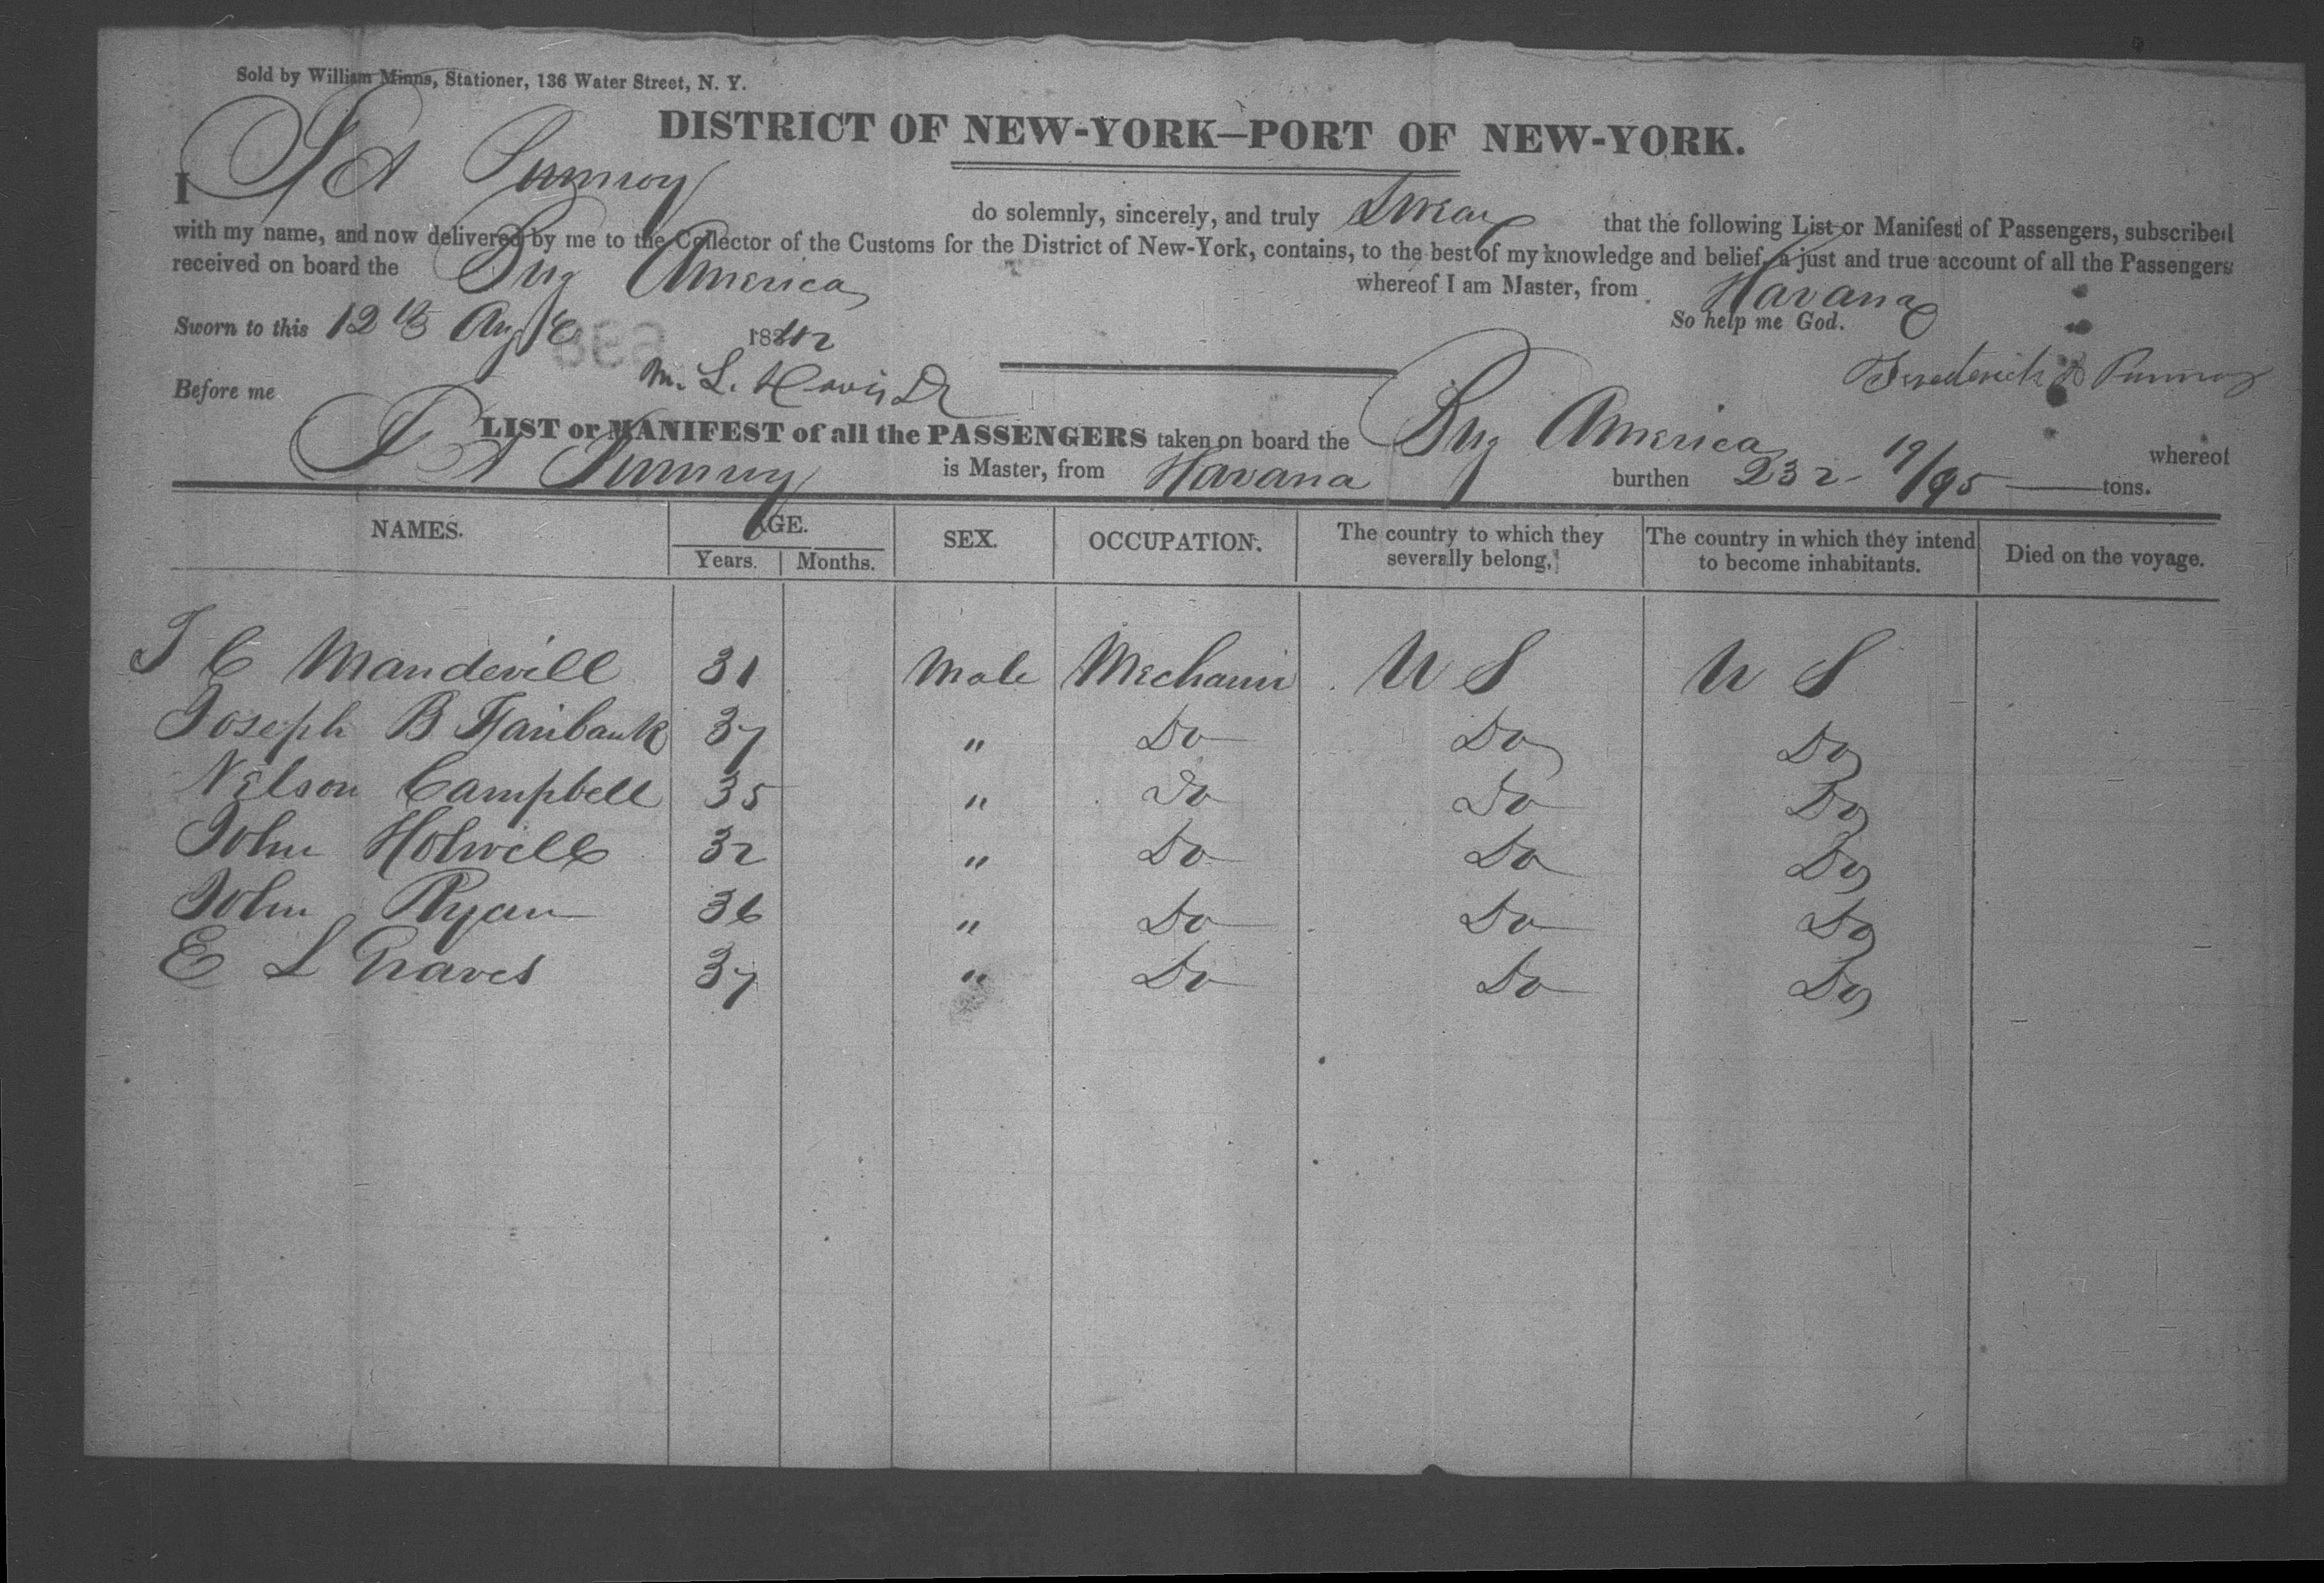 Sold by William Minns, Stationer, 136 Water Street, N. Y.
DISTRICT OF NEW-YORK—PORT OF NEW-YORK.
I F A do solemnly, sincerely, and truly Swear that the following List or Manifest of Passengers, subscribed
with my name, and now delivered by me to the Collector of the Customs for the District of New-York, contains, to the best of my knowledge and belief, a just and true account of all the Passengers
received on board the Brig America whereof I am Master, from Havana
Sworn to this 12th Aug 1842 So help me God.
Before me M. L. Davis Frederick
LIST or MANIFEST of all the PASSENGERS taken on board the Brig America whereof
F A is Master, from Havana burthen 232 19/95 tons.
NAMES. AGE. SEX. OCCUPATION. The country to which they severally belong. The country in which they intend to become inhabitants. Died on the voyage.
Years. Months.
J C Mandevill 31 Male Mechanic U S U S
Joseph B Fairbank 37 " Do Do Do
Nelson Campbell 35 " Do Do Do
John Holwell 32 " Do Do Do
John Ryan 36 " Do Do Do
E L Graves 37 " Do Do Do